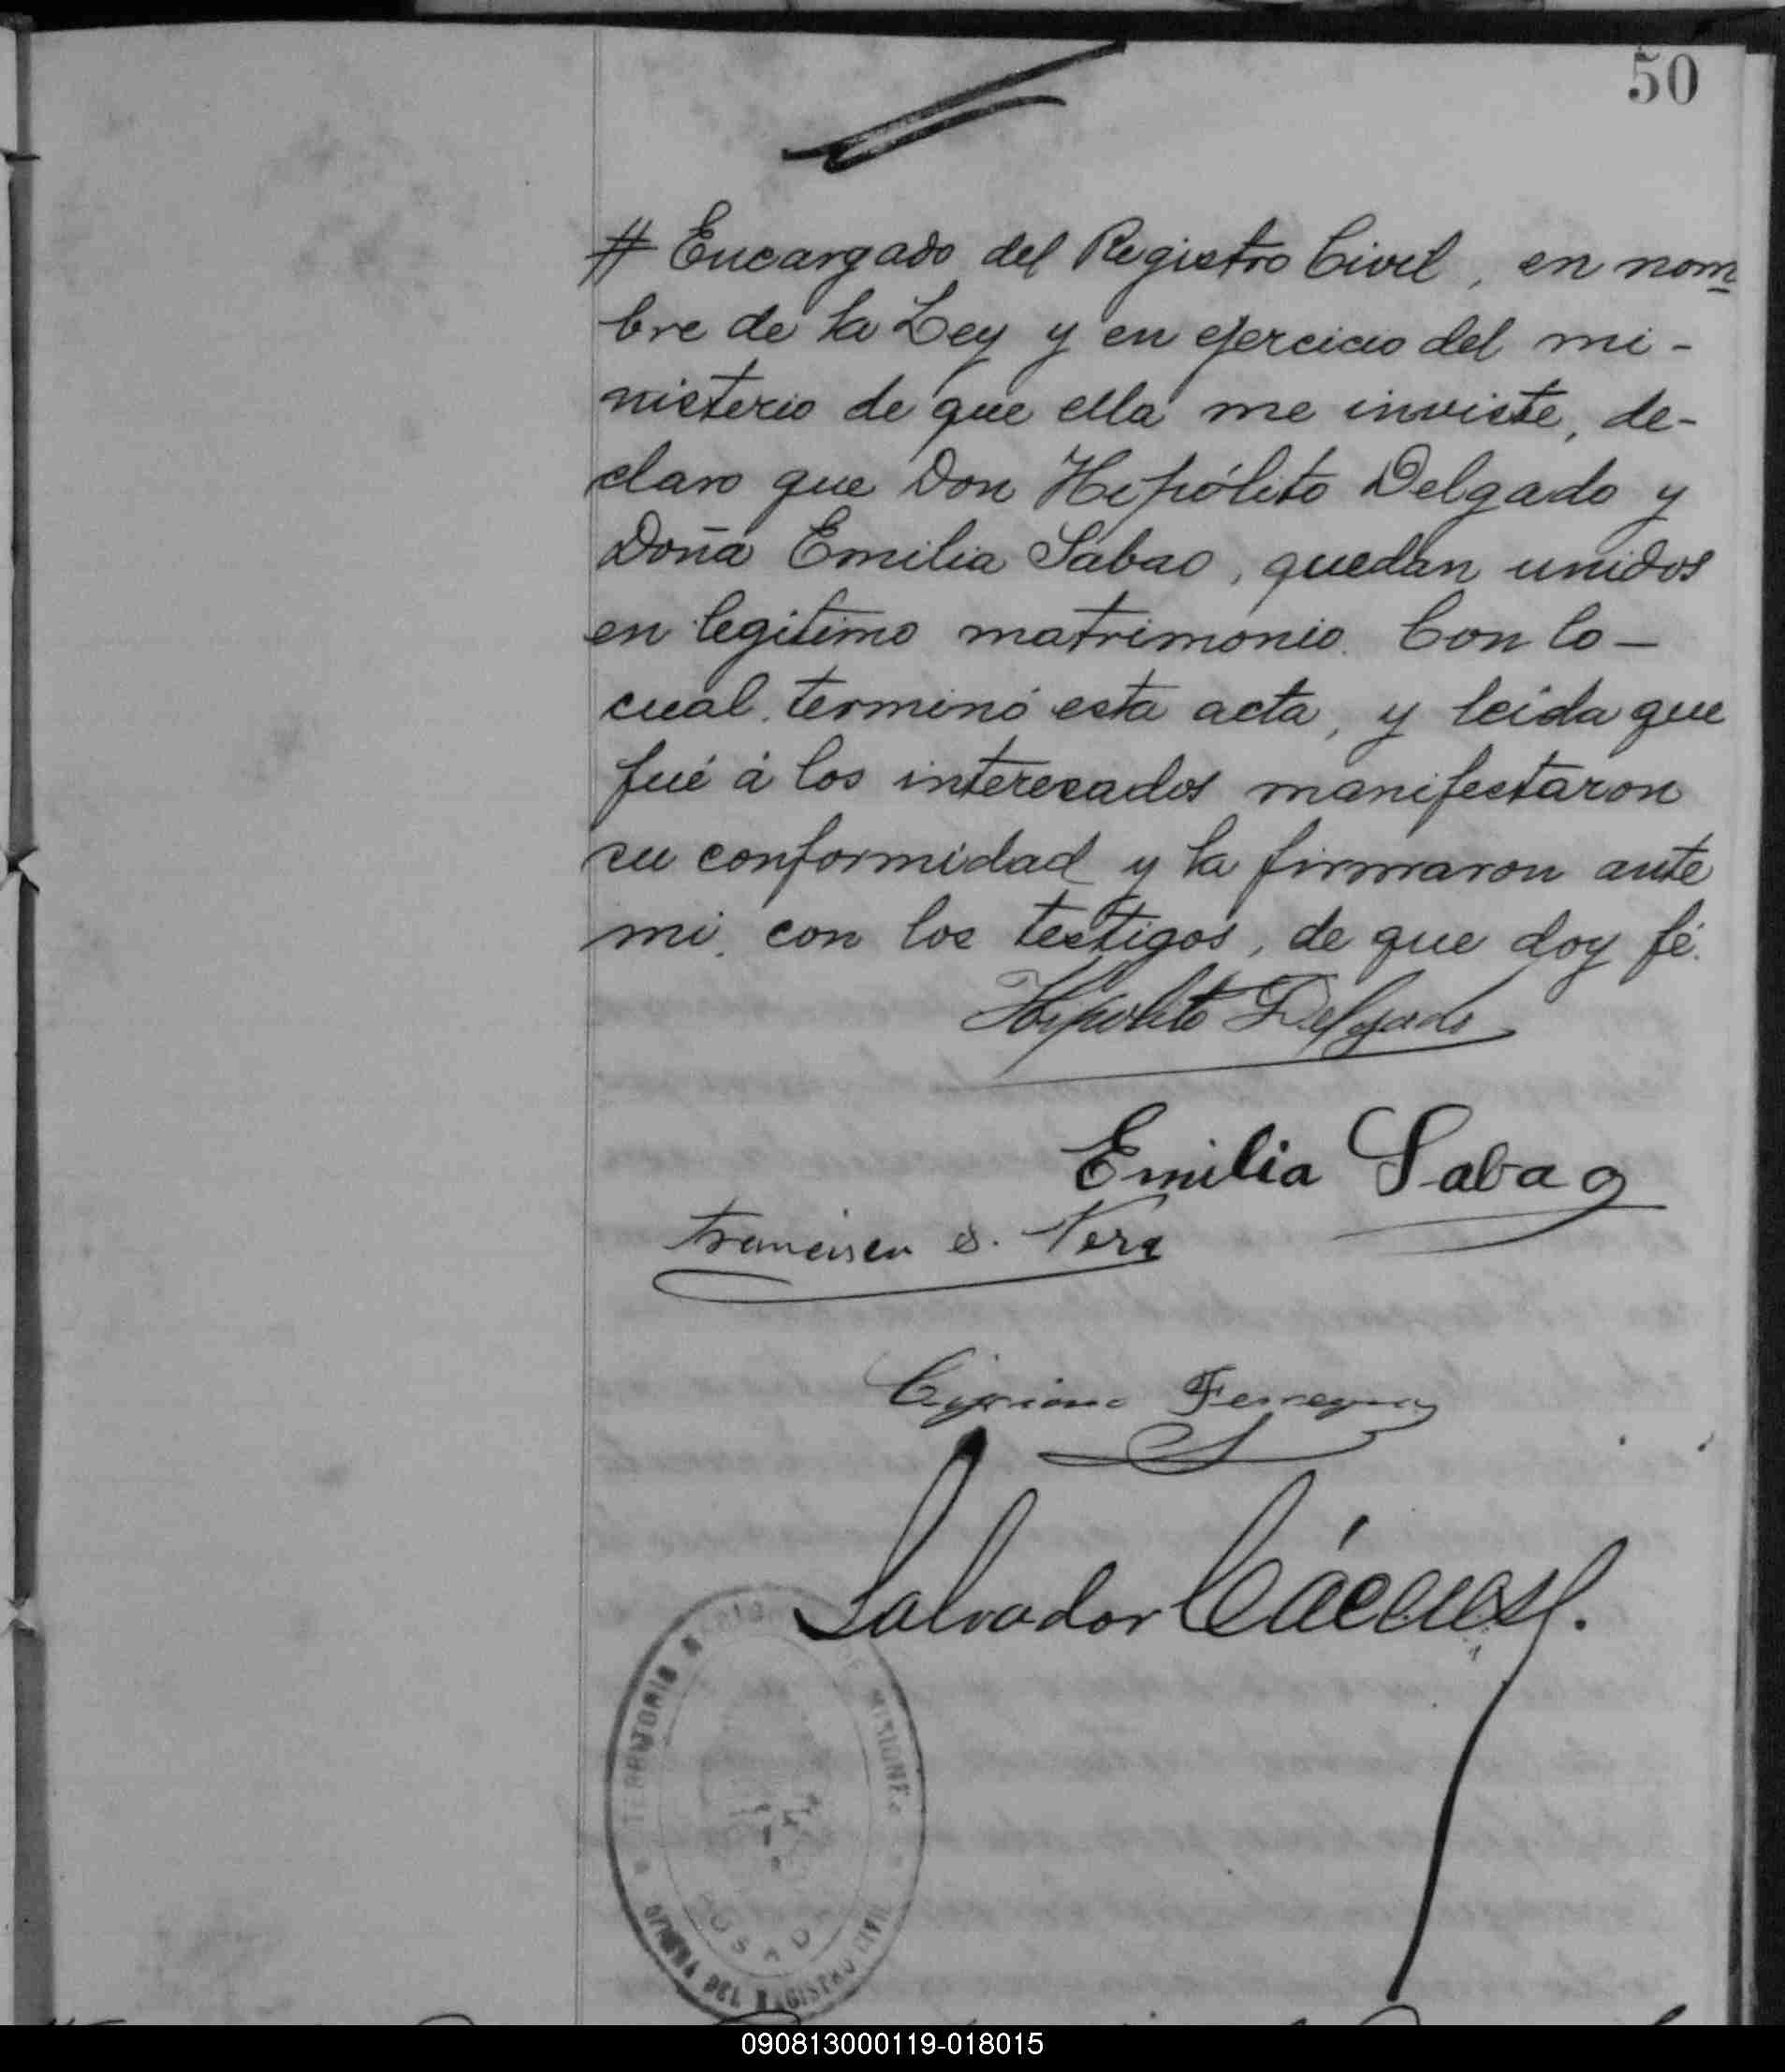 50
# Encargado del Registro Civil, en nom
bre de la Ley y en ejercicio del mi-
nisterio de que ella me inviste, de-
claro que Don Hipólito Delgado y
Doña Emilia Sabao, quedan unidos
en legitimo matrimonio. Con lo-
cual terminó esta acta, y leida que
fué á los interesados manifestaron
su conformidad y la firmaron ante
mi, con los testigos, de que doy fé.
Hipolito Delgado
Emilia Sabag
Francisco S. Vera
Cipriano
Salvador Cáceres
TERRITORIO DE MISIONES
OFICINA DEL REGISTRO CIVIL
090813000119-018015